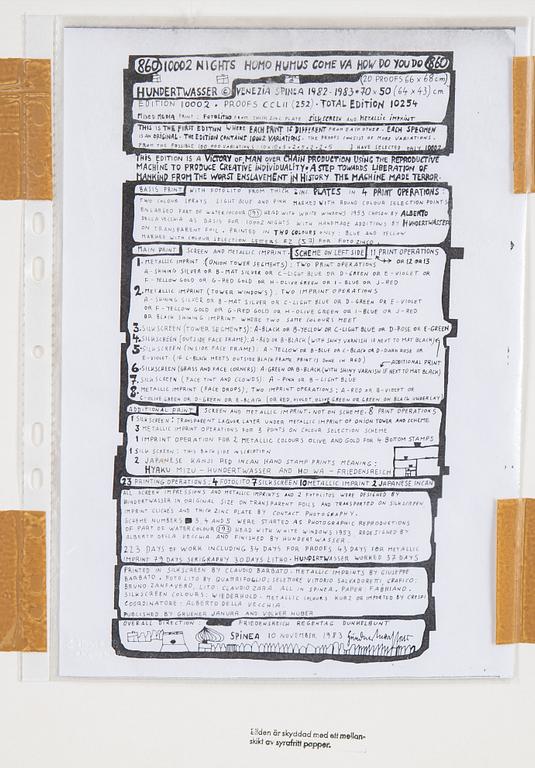 860 10002 NIGHTS HOMO HUMUS COME VA HOW DO YOU DO 860
(20 PROOFS 66 x 68 cm)
HUNDERTWASSER © VENEZIA SPINEA 1982-1983 • 70 x 50 (64 x 43) cm
EDITION 10002 • PROOFS CCLII (252) • TOTAL EDITION 10254
MIXED MEDIA PRINT: FOTOLITHO FROM THICK ZINC PLATE SILKSCREEN AND METALLIC IMPRINT
THIS IS THE FIRST EDITION WHERE EACH PRINT IS DIFFERENT FROM EACH OTHER • EACH SPECIMEN
IS AN ORIGINAL • THE EDITION CONTAINS 10002 VARIATIONS • THE PROOFS CONSIST OF MORE VARIATIONS •
FROM THE POSSIBLE 100 000 VARIATIONS I HAVE SELECTED ONLY 10002
THIS EDITION IS A VICTORY OF MAN OVER CHAIN PRODUCTION USING THE REPRODUCTIVE
MACHINE TO PRODUCE CREATIVE INDIVIDUALITY • A STEP TOWARDS LIBERATION OF
MANKIND FROM THE WORST ENSLAVEMENT IN HISTORY. THE MACHINE MADE TERROR.
BASIS PRINT WITH FOTOLITO FROM THICK ZINC PLATES IN 4 PRINT OPERATIONS:
TWO COLOUR SPRAYS LIGHT BLUE AND PINK MARKED WITH ROUND COLOUR SELECTION POINTS
ENLARGED PART OF WATERCOLOUR 193 HEAD WITH WHITE WINDOWS 1953 CHOSEN BY ALBERTO
DELLA VECCHIA AS BASIS FOR 10002 NIGHTS WITH HANDMADE ADDITIONS BY HUNDERTWASSER
ON TRANSPARENT FOIL, PRINTED IN TWO COLOURS ONLY: BLUE AND YELLOW
MARKED WITH COLOUR SELECTION FOR FOTO ZINCO
MAIN PRINT SCREEN AND METALLIC IMPRINT: SCHEME ON LEFT SIDE 11 PRINT OPERATIONS
1. METALLIC IMPRINT (ONION TOWER SEGMENTS): TWO PRINT OPERATIONS OR 12 OR 13
A-SHINING SILVER OR B-MAT SILVER OR C-LIGHT BLUE OR D-GREEN OR E-VIOLET OR
F-YELLOW GOLD OR G-RED GOLD OR H-OLIVE GREEN OR I-BLUE OR J-RED
2. METALLIC IMPRINT (TOWER WINDOWS): TWO IMPRINT OPERATIONS
A-SHINING SILVER OR B-MAT SILVER OR C-LIGHT BLUE OR D-GREEN OR E-VIOLET
OR F-YELLOW GOLD OR G-RED GOLD OR H-OLIVE GREEN OR I-BLUE OR J-RED
OR BLACK SHINING IMPRINT WHERE TWO SAME COLOURS MEET
3. SILKSCREEN (TOWER SEGMENTS): A-BLACK OR B-YELLOW OR C-LIGHT BLUE OR D-ROSE OR E-GREEN
4. SILKSCREEN (OUTSIDE FACE FRAME): A-RED OR B-BLACK (WITH SHINY VARNISH IS NEXT TO MAT BLACK)
5. SILKSCREEN (INSIDE FACE FRAME): A-YELLOW OR B-BLUE OR C-BLACK OR D-DARK ROSE OR
E-VIOLET (IF C-BLACK MEETS OUTSIDE BLACK FRAME PRINT IS DONE IN RED) ADDITIONAL PRINT
6. SILKSCREEN (GRASS AND FACE CORNERS): A-GREEN OR B-BLACK (WITH SHINY VARNISH IF NEXT TO MAT BLACK)
7. SILKSCREEN (FACE TINT AND CLOUDS): A-PINK OR B-LIGHT BLUE
8. METALLIC IMPRINT (FACE DROPS), TWO IMPRINT OPERATIONS: A-RED OR B-VIOLET OR
C-OLIVE GREEN OR D-GREEN OR E-BLACK (OR RED, VIOLET, OLIVE GREEN OR GREEN ON BLACK UNDERLAY
ADDITIONAL PRINT SCREEN AND METALLIC IMPRINT • NOT ON SCHEME: 8 PRINT OPERATIONS
1 SILKSCREEN: TRANSPARENT LAQUER LAYER UNDER METALLIC IMPRINT OF ONION TOWER AND SCHEME
3 METALLIC IMPRINT OPERATIONS FOR 3 POINTS ON COLOUR SELECTION SCHEME
1 IMPRINT OPERATION FOR 2 METALLIC COLOURS OLIVE AND GOLD FOR 4 BOTTOM STAMPS
1 SILKSCREEN: THIS BACKSIDE INSCRIPTION
2 JAPANESE KANJI RED INCAN HAND STAMP PRINTS MEANING:
HYAKU MIZU - HUNDERTWASSER AND HO WA - FRIEDENSREICH
23 PRINTING OPERATIONS: 4 FOTOLITO 7 SILKSCREEN 10 METALLIC IMPRINT 2 JAPANESE INCAN
ALL SCREEN IMPRESSIONS AND METALLIC IMPRINTS AND 2 FOTOLITOS WERE DESIGNED BY
HUNDERTWASSER IN ORIGINAL SIZE ON TRANSPARENT FOILS AND TRANSPOSED ON SILKSCREEN
IMPRINT CLICHÉS AND THICK ZINC PLATE BY CONTACT PHOTOGRAPHY.
SCHEME NUMBERS 3 4 AND 5 WERE STARTED AS PHOTOGRAPHIC REPRODUCTIONS
OF PART OF WATERCOLOUR 193 HEAD WITH WHITE WINDOWS 1953 REDESIGNED BY
ALBERTO DELLA VECCHIA AND FINISHED BY HUNDERTWASSER.
223 DAYS OF WORK INCLUDING 34 DAYS FOR PROOFS 43 DAYS FOR METALLIC
IMPRINT 79 DAYS SERIGRAPHY 30 DAYS LITHO • HUNDERTWASSER WORKED 52 DAYS
PRINTED IN SILKSCREEN BY CLAUDIO BARBATO • METALLIC IMPRINTS BY GIUSEPPE
BARBATO • FOTOLITO BY QUADRIFOGLIO: SELETTORE VITTORIO SALVADORETTI, GRAFICO:
BRUNO ZANFAVERO, LITO: CLAUDIO ZARA ALL IN SPINEA. PAPER: FABRIANO.
SILKSCREEN COLOURS: WIEDERHOLD • METALLIC COLOURS KURZ OR IMPORTED BY CRESPI
COORDINATORE: ALBERTO DELLA VECCHIA
PUBLISHED BY GRUENER JANURA AND VOLKER HUBER
OVERALL DIRECTION FRIEDENSREICH REGENTAG DUNKELBUNT
SPINEA 10 NOVEMBER 1983
Bilden är skyddad med ett mellan-
skikt av syrafritt papper.